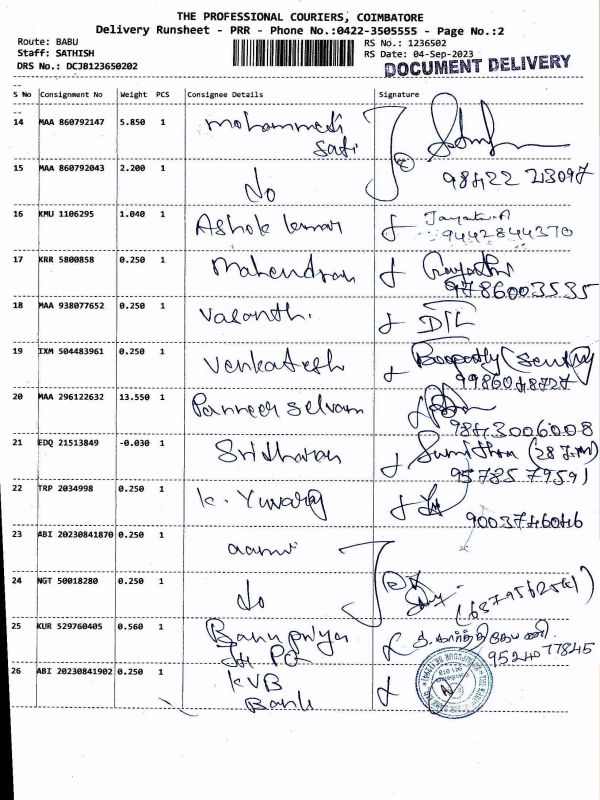 THE PROFESSIONAL COURIERS, COIMBATORE
Delivery Runsheet - PRR - Phone No.:0422-3505555 - Page No.:2
Route: BABU
Staff: SATHISH
DRS No.: DCJB123650202
RS No.: 1236502
RS Date: 04-Sep-2023
DOCUMENT DELIVERY
S No Consignment No Weight PCS Consignee Details Signature
14 MAA 860792147 5.850 1 Mohammed
Safi
15 MAA 860792043 2.200 1 do
98422 23097
16 KMU 1106295 1.040 1 Ashok kumar
9442844370
17 KRR 5800858 0.250 1 Mahendran
9786003535
18 MAA 938077652 0.250 1 Vasanth.
19 IXM 504483961 0.250 1 Venkatesh Boopathy
20 MAA 296122632 13.550 1 Panneer Selvam
9843006008
21 EDQ 21513849 -0.030 1 Sridharan Sumithra
95785 79591
22 TRP 2034998 0.250 1 K. Yuvaraj
9003746046
23 ABI 20230841870 0.250 1
24 NGT 50018280 0.250 1 do
25 KUR 529760405 0.560 1 Banupriya
9524077845
26 ABI 20230841902 0.250 1 KVB
Bank